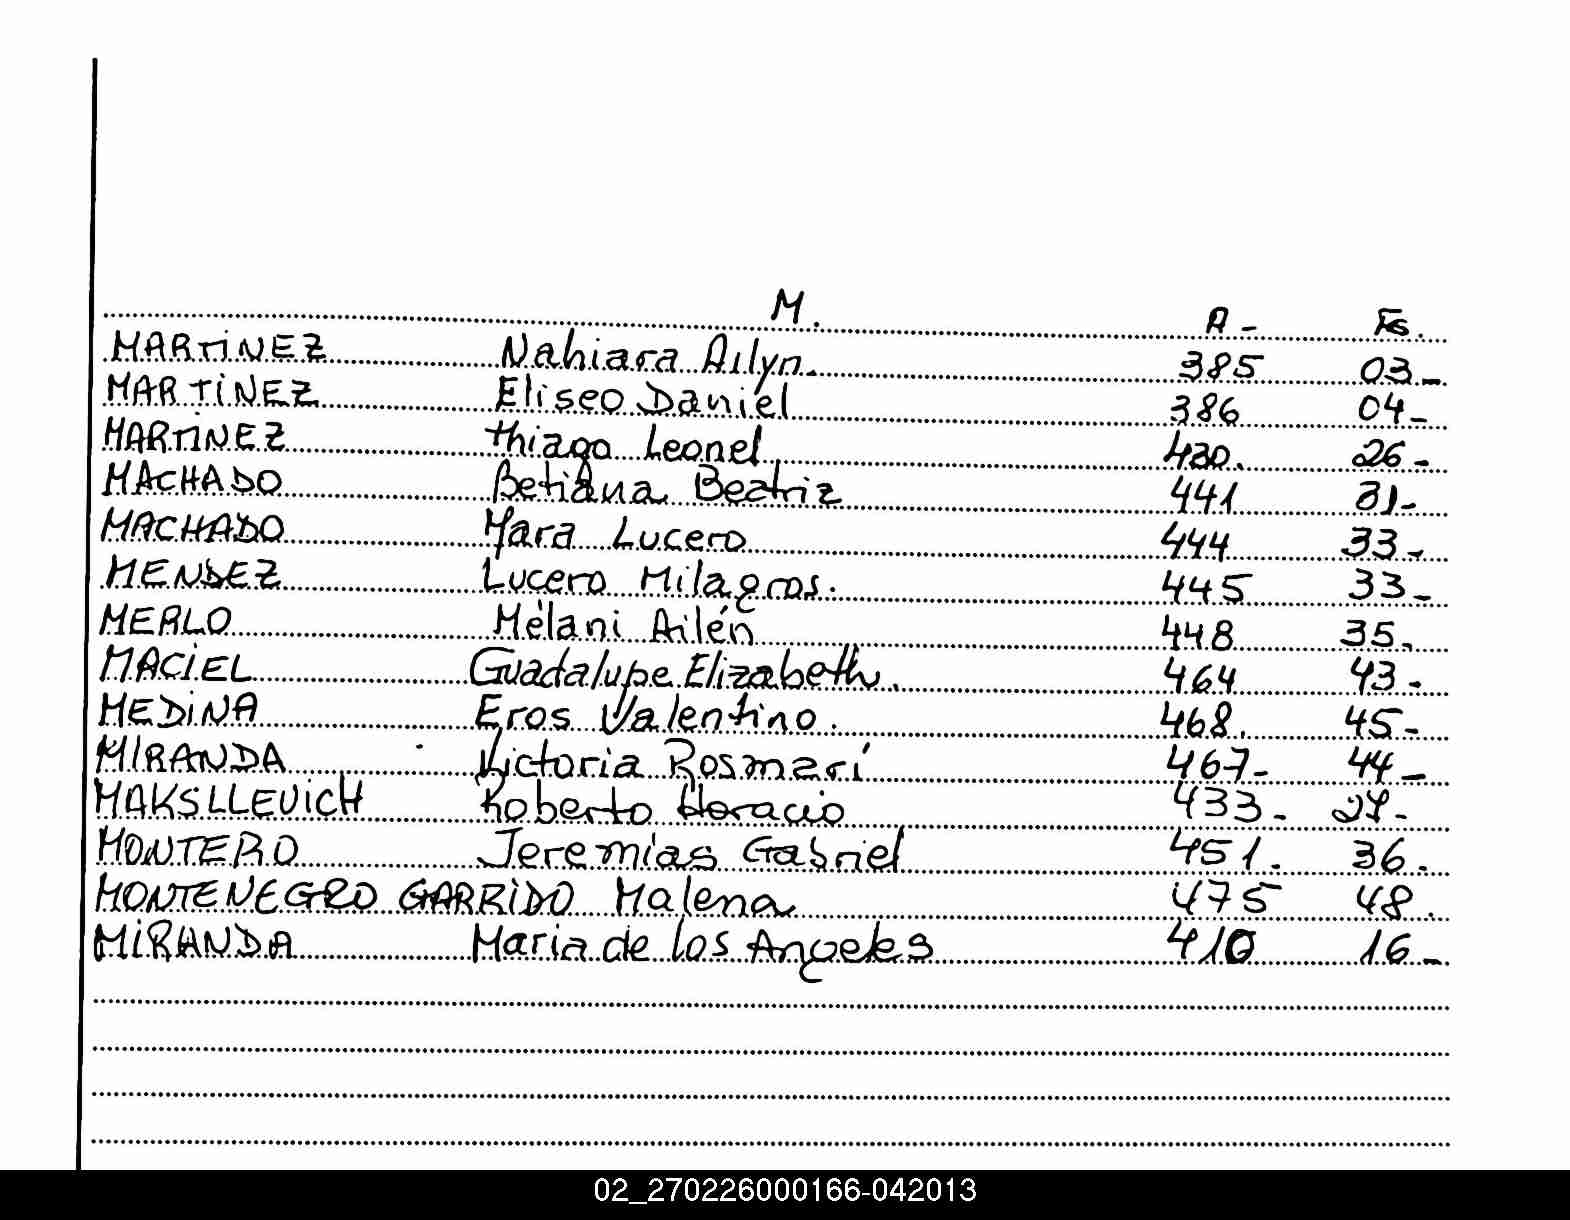 M.
A - Fs.
MARTINEZ Nahiara Ailyn. 385 03-
MARTINEZ Eliseo Daniel 386 04-
MARTINEZ thiago Leonel 430. 26-
MACHADO Betiana Beatriz 441 31-
MACHADO Mara Lucero 444 33-
MENDEZ Lucero Milagros. 445 33-
MERLO Mélani Ailén 448 35.
MACIEL Guadalupe Elizabeth. 464 43-
MEDINA Eros Valentino. 468. 45-
MIRANDA Victoria Rosmarí 467- 44-
MAKSLLEVICH Roberto Horacio 433- 27-
MONTERO Jeremías Gabriel 451. 36.
MONTENEGRO GARRIDO Malena 475 48.
MIRANDA Maria de los Angeles 410 16-
02_270226000166-042013